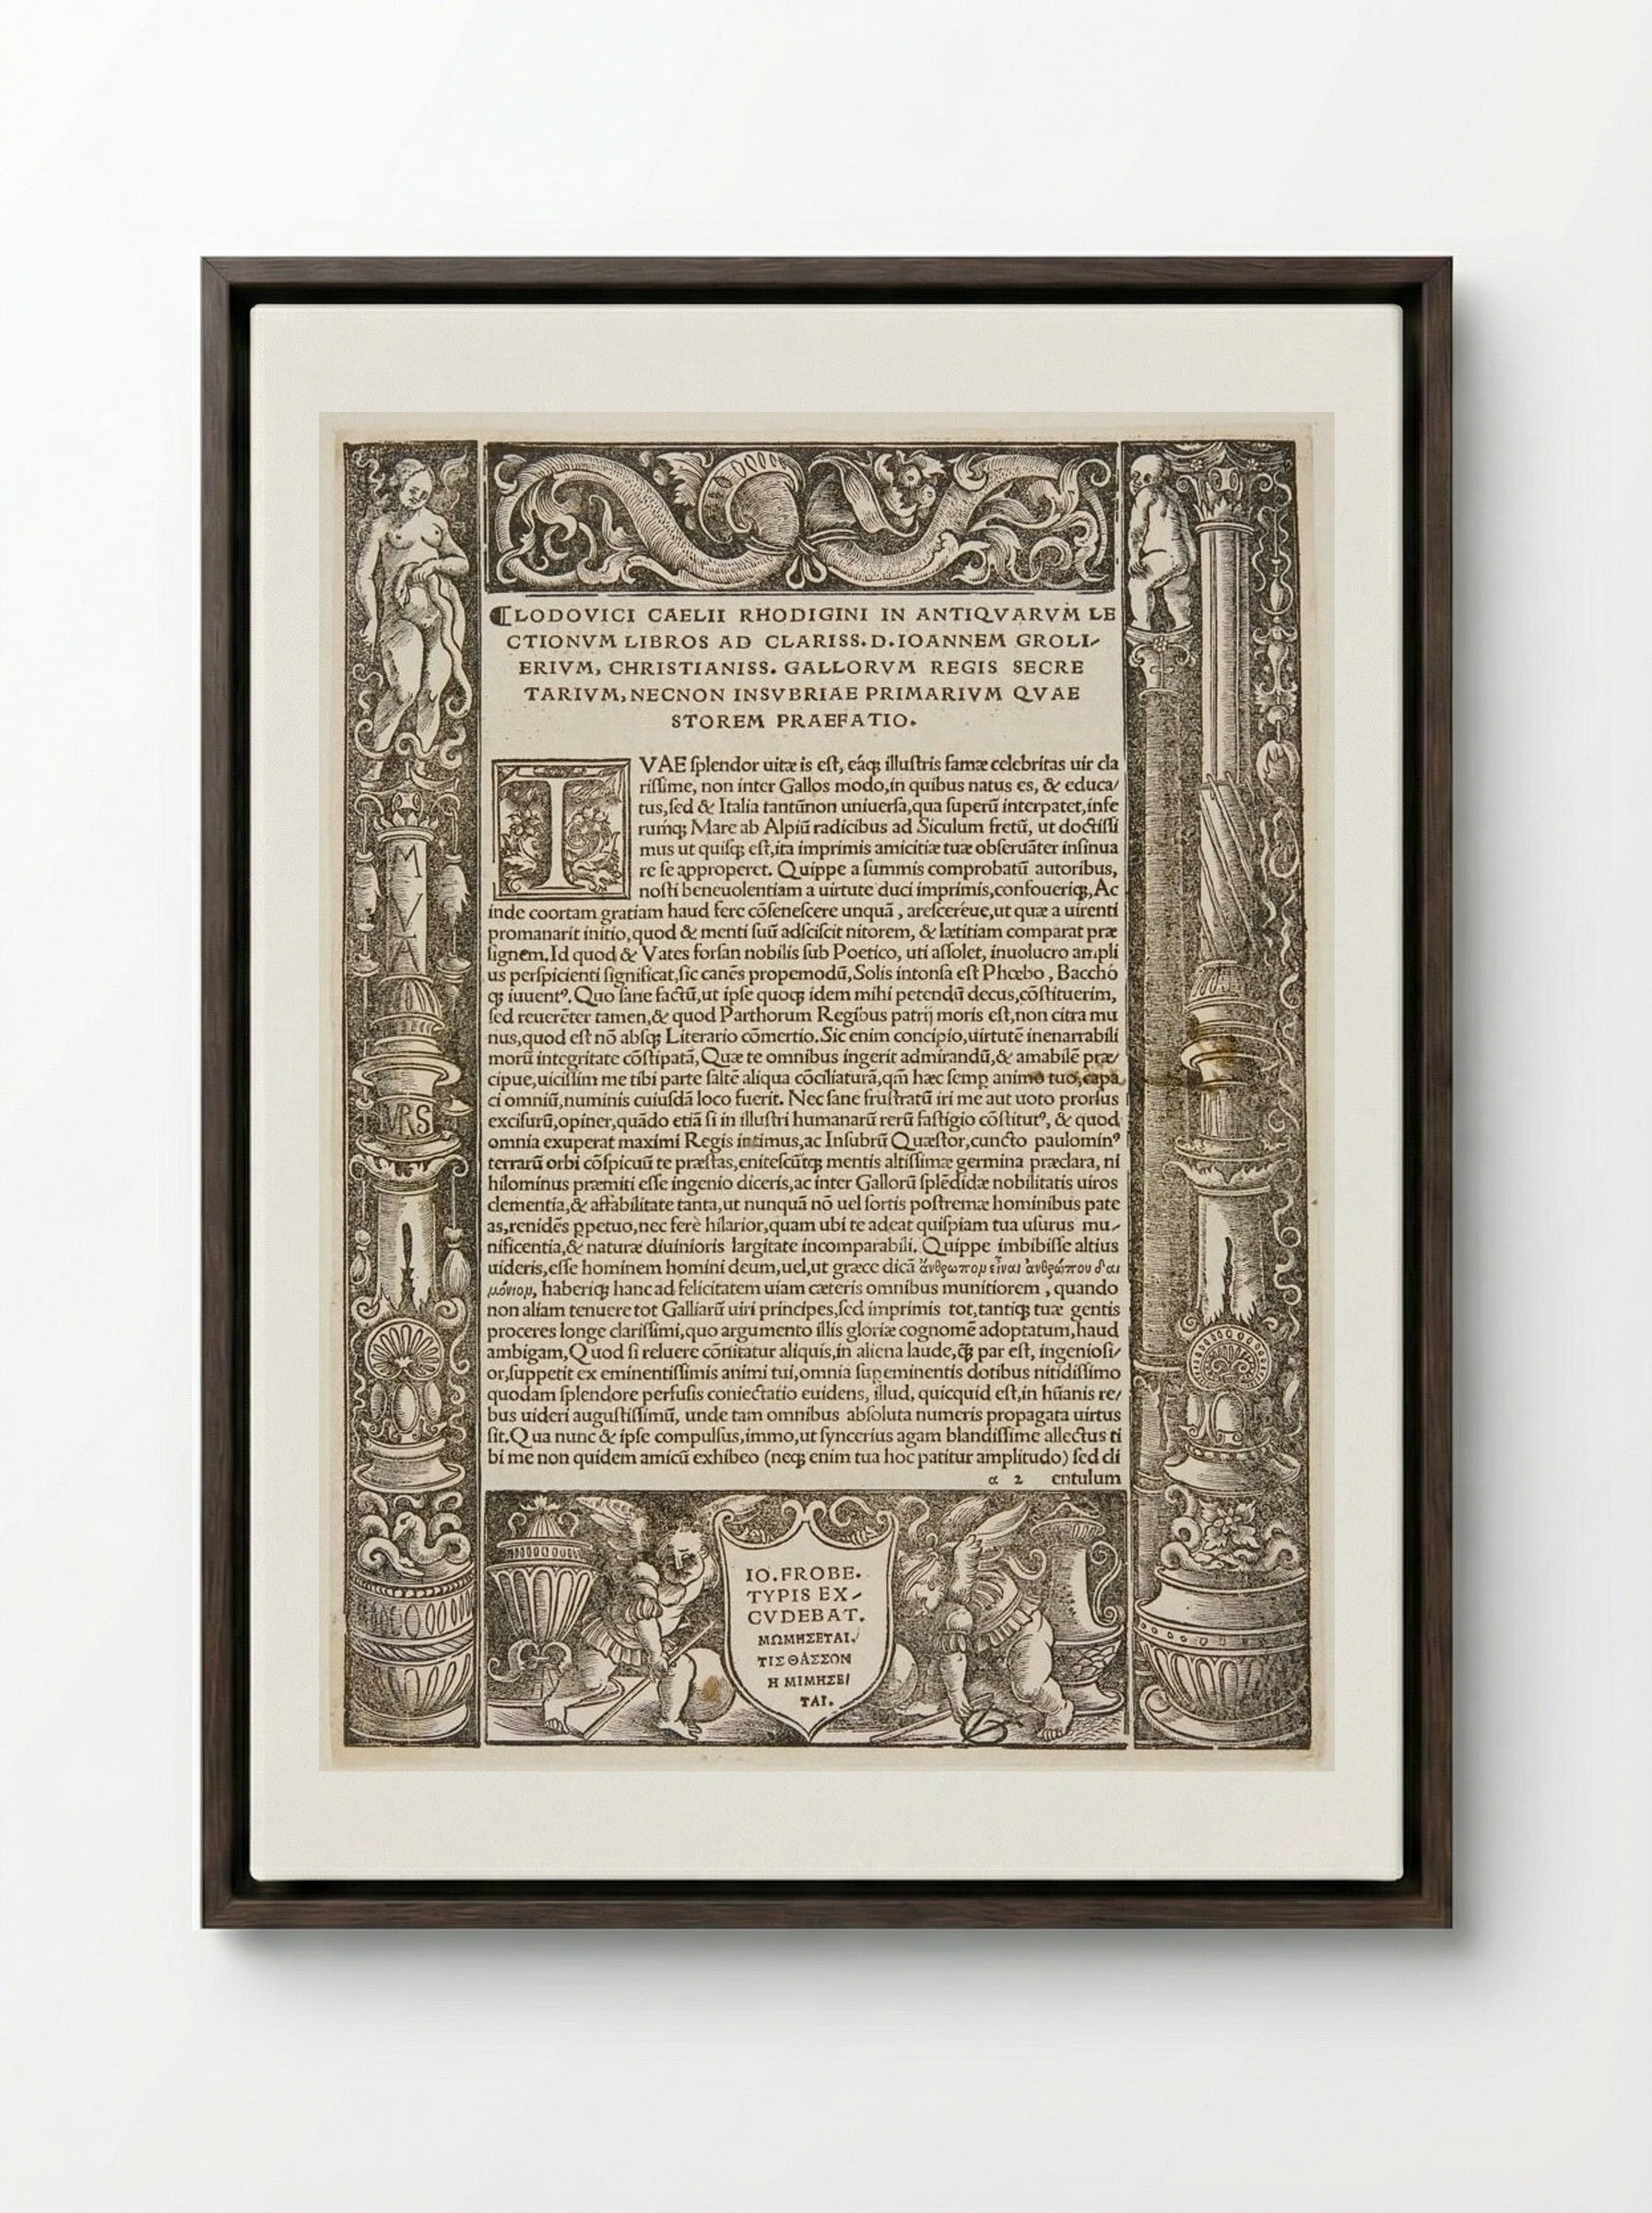 LODOVICI CAELII RHODIGINI IN ANTIQVARVM LE
CTIONVM LIBROS AD CLARISS.D.IOANNEM GROLI-
ERIVM, CHRISTIANISS. GALLORVM REGIS SECRE
TARIVM, NECNON INSVBRIAE PRIMARIVM QVAE
STOREM PRAEFATIO.
I
VAE ſplendor uitæ is eſt, eáq; illuſtris famæ celebritas uir cla
riſſime, non inter Gallos modo, in quibus natus es, & educa/
tus, ſed & Italia tantūnon uniuerſa, qua ſuperū interpatet, infe
rumq; Mare ab Alpiū radicibus ad Siculum fretū, ut doctiſſi
mus ut quiſq; eſt, ita imprimis amicitiæ tuæ obſeruāter inſinua
re ſe approperet. Quippe a ſummis comprobatū autoribus,
noſti beneuolentiam a uirtute duci imprimis, confoueriq;, Ac
inde coortam gratiam haud fere cōſeneſcere unquā, areſcereue, ut quæ a uirenti
promanarit initio, quod & menti ſuū adſciſcit nitorem, & lætitiam comparat præ
ſignem. Id quod & Vates forſan nobilis ſub Poetico, uti aſſolet, inuolucro ampli
us perſpicienti ſignificat, ſic canēs propemodū, Solis intonſa eſt Phœbo, Bacchó
q; iuuentꝰ. Quo ſane factū, ut ipſe quoq; idem mihi petendū decus, cōſtituerim,
ſed reuerēter tamen, & quod Parthorum Regibus patrij moris eſt, non citra mu
nus, quod eſt nō abſq; Literario cōmertio. Sic enim concipio, uirtutē inenarrabili
morū integritate cōſtipatā, Quæ te omnibus ingerit admirandū, & amabilē præ/
cipue, uiciſſim me tibi parte ſaltē aliqua cōciliaturā, qm̄ hæc ſemp animo tuo, capa
ci omniū, numinis cuiuſdā loco fuerit. Nec ſane fruſtratū iri me aut uoto prorſus
exciſurū, opiner, quādo etiā ſi in illuſtri humanarū rerū faſtigio cōſtitutꝰ, & quod
omnia exuperat maximi Regis intimus, ac Inſubrū Quæſtor, cuncto paulominꝰ
terrarū orbi cōſpicuū te præſtas, eniteſcūtq; mentis altiſſimæ germina præclara, ni
hilominus præmiti eſſe ingenio diceris, ac inter Gallorū ſplēdidæ nobilitatis uiros
clementia, & affabilitate tanta, ut nunquā nō uel ſortis poſtremæ hominibus pate
as, renidēs ꝑpetuo, nec ferè hilarior, quam ubi te adeat quiſpiam tua uſurus mu-
nificentia, & naturæ diuinioris largitate incomparabili. Quippe imbibiſſe altius
uideris, eſſe hominem homini deum, uel, ut græce dicā ἄνθρωπομ εἶναι ἀνθρώπου δαι
μόνιομ, haberiq; hanc ad felicitatem uiam cæteris omnibus munitiorem, quando
non aliam tenuere tot Galliarū uiri principes, ſed imprimis tot, tantiq; tuæ gentis
proceres longe clariſſimi, quo argumento illis gloriæ cognomē adoptatum, haud
ambigam, Quod ſi reluere cōnitatur aliquis, in aliena laude, q̄ par eſt, ingenioſi/
or, ſuppetit ex eminentiſſimis animi tui, omnia ſuꝑeminentis dotibus nitidiſſimo
quodam ſplendore perfuſis coniectatio euidens, illud, quicquid eſt, in hūanis re/
bus uideri auguſtiſſimū, unde tam omnibus abſoluta numeris propagata uirtus
ſit. Qua nunc & ipſe compulſus, immo, ut ſyncerius agam blandiſſime allectus ti
bi me non quidem amicū exhibeo (neq; enim tua hoc patitur amplitudo) ſed cli
α 2 entulum
MVA
VRS
IO. FROBE.
TYPIS EX-
CVDEBAT.
ΜΩΜΗΣΕΤΑΙ
ΤΙΣ ΘΑΣΣΟΝ
Η ΜΙΜΗΣΕ/
ΤΑΙ.